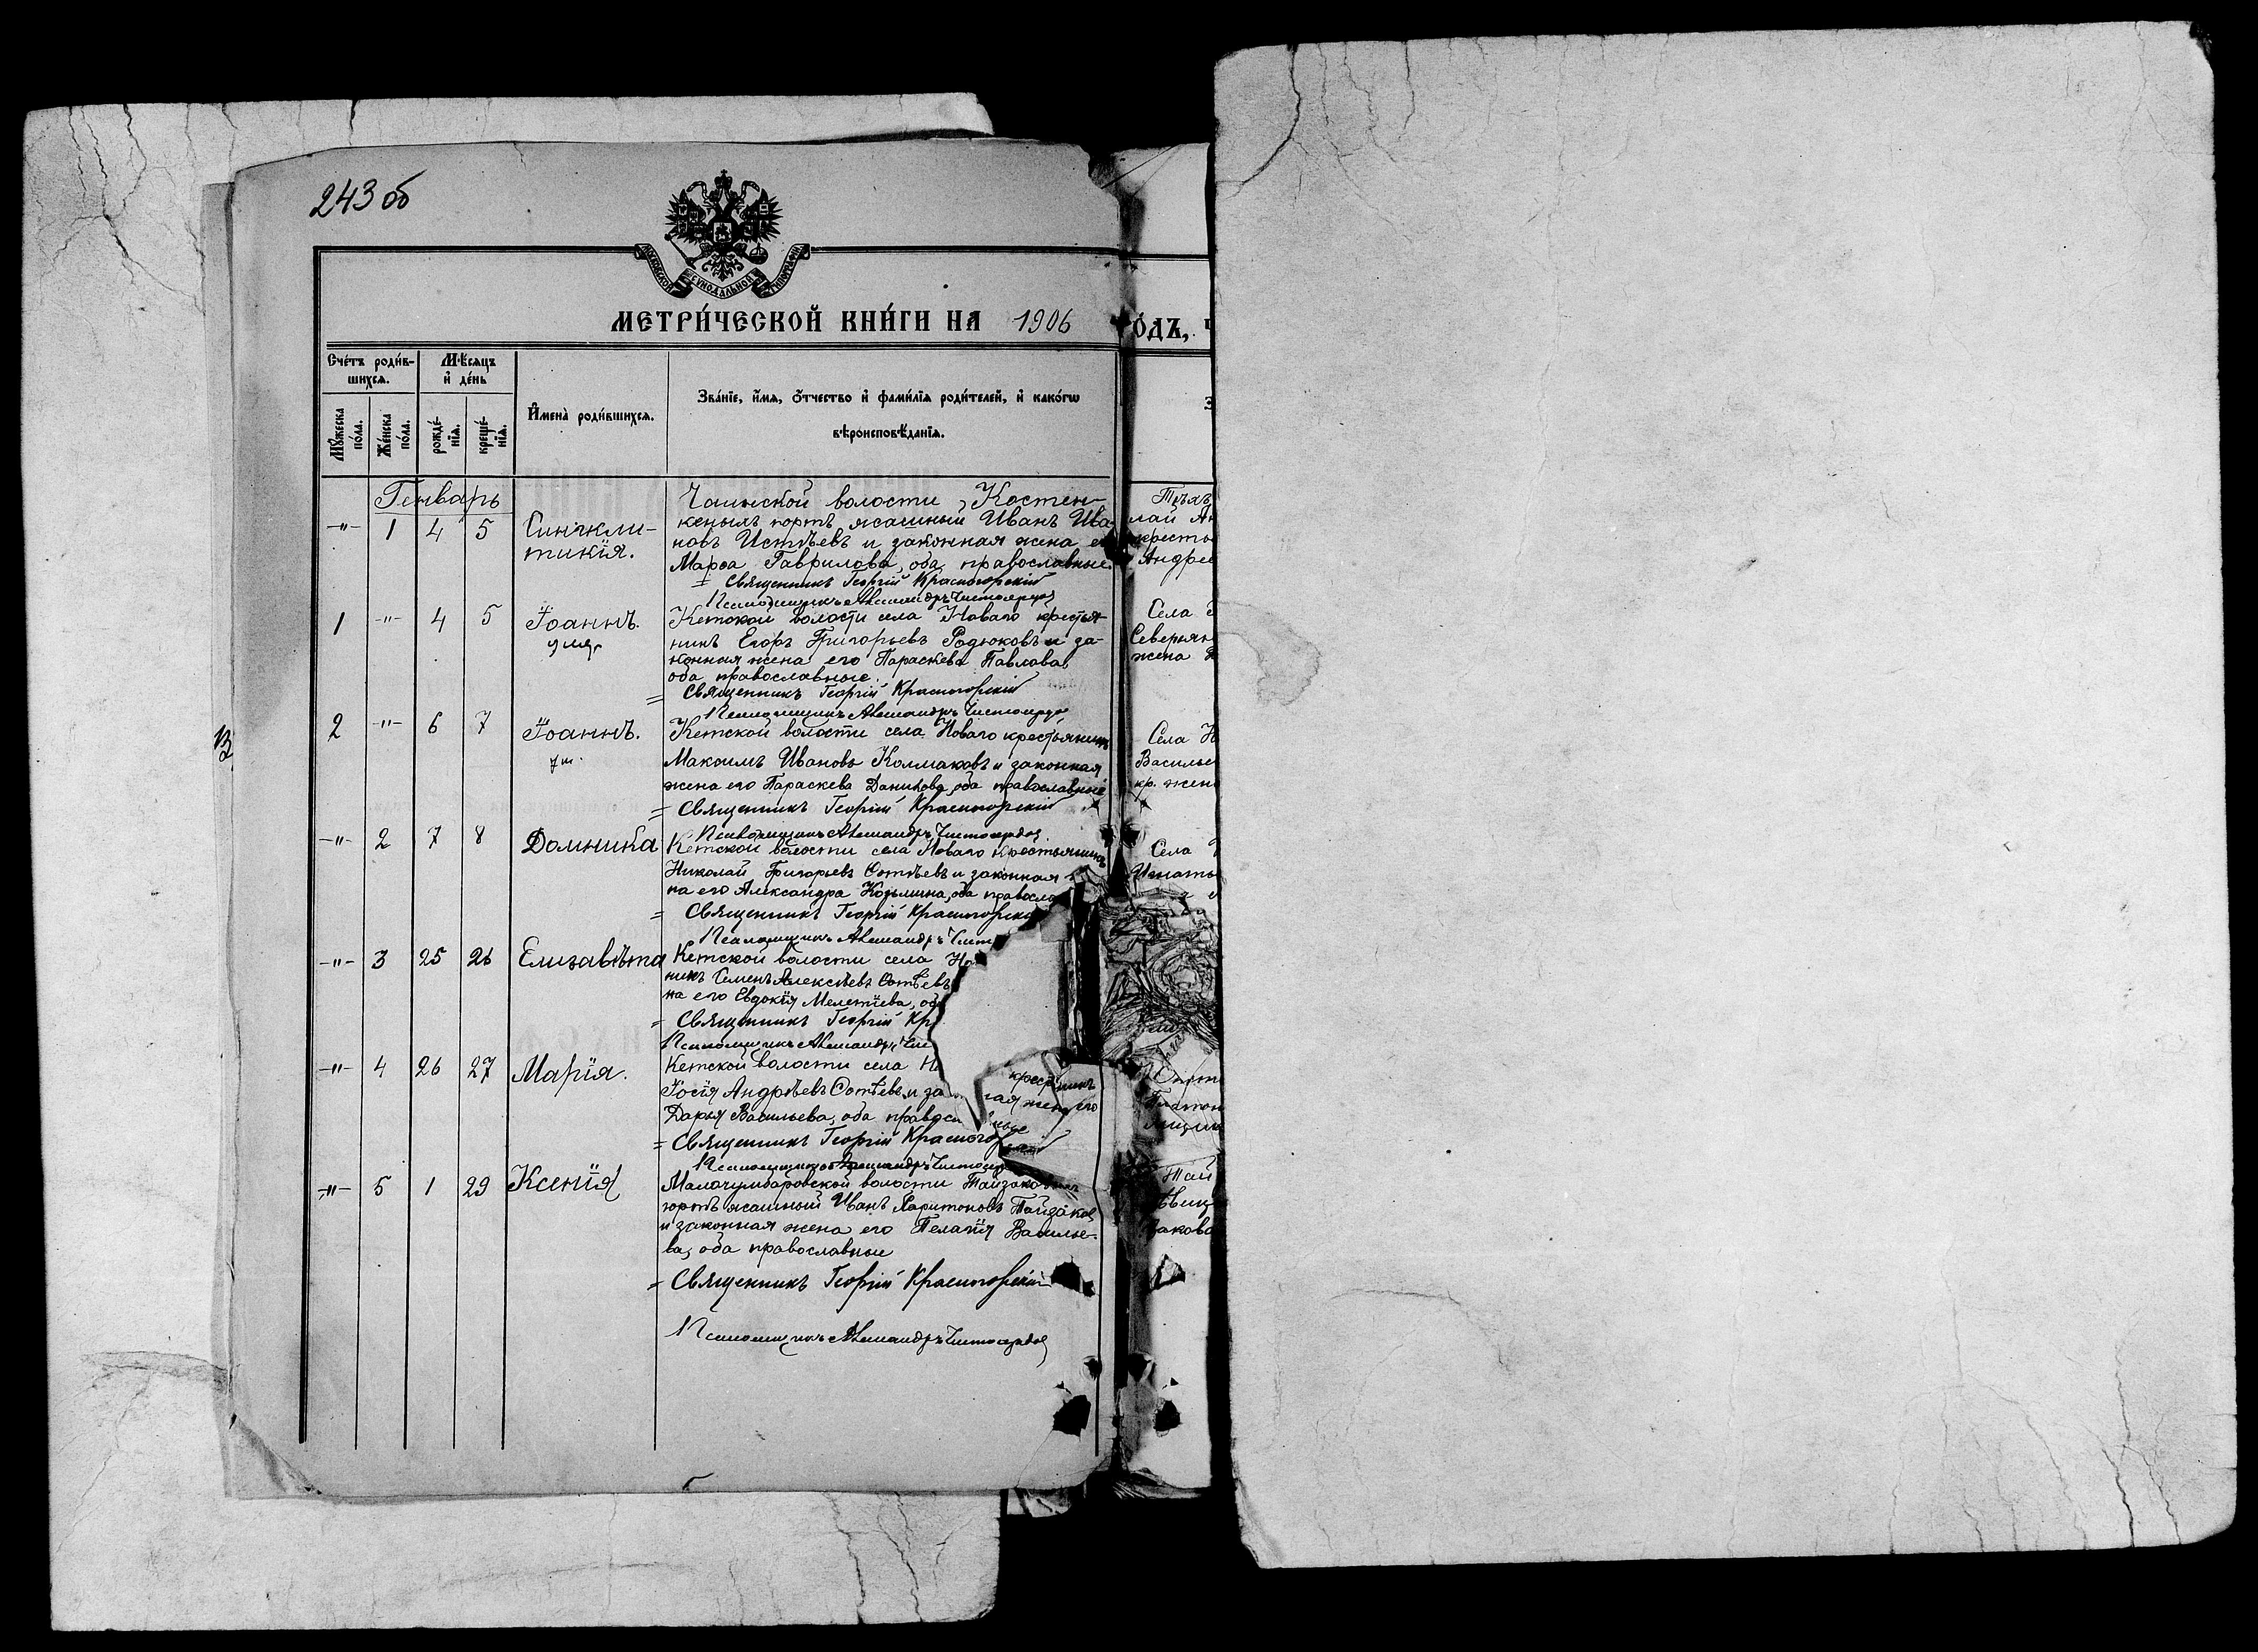 243 об
МОСКОВСКОЙ СѴНОДАЛЬНОЙ ТИПОГРАФІИ
МЕТРИ́ЧЕСКОЙ КНИ́ГИ НА 1906
Счéтъ роди́в-
шихсѧ.
Мѣ́сѧцъ
и҆ де́нь
Мꙋ́жеска
по́ла.
Же́нска
по́ла.
рожде́-
нїѧ.
креще́-
нїѧ.
И҆мена̀ роди́вшихсѧ.
Зва́нїе, и҆́мѧ, ѻ҆́тчество и҆ фами́лїѧ роди́телей, и҆ како́гѡ
вѣроисповѣ́данїѧ.
Генварь
-"- 1 4 5 Синкли-
тикія.
Костен-
юртъ ясашный Иванъ Ива-
новъ и законная жена
Марѳа Гаврилова, оба православные.
= Священникъ Георгій Красногорскій
Псаломщикъ Александръ Чистосердов
1 -"- 4 5 Іоаннъ.
Кетской волости села Новаго крестья-
нинъ Егоръ Григорьевъ Родюковъ и за-
конная жена его Параскева Павлова
оба православные.
= Священникъ Георгій Красногорскій
Псаломщикъ Александръ Чистосердов
2 -"- 6 7 Іоаннъ.
Кетской волости села Новаго крестьянинъ
Максимъ Ивановъ Колмаковъ и законная
жена его Параскева Данилова, оба православные
= Священникъ Георгій Красногорскій
Псаломщикъ Александръ Чистосердов
-"- 2 7 8 Домника
Кетской волости села Новаго крестьянинъ
Николай Григорьевъ Сотѣевъ и законная
на его Александра Козьмина, оба правосла
= Священникъ Георгій Красногорск
Псаломщикъ Александръ Чист
-"- 3 25 26 Елизавѣта
Кетской волости села Но
никъ Семенъ Алексѣевъ Сотѣевъ
на его Евдокія Мелетіева, об
= Священникъ Георгій Кр
Псаломщикъ Александръ Чис
-"- 4 26 27 Марія.
Кетской волости села Н
Андрѣевъ Сотѣевъ и за ная жена его
Дарья Васильева, оба правос ные
= Священникъ Георгій Красногорскій
Псаломщикъ Александръ Чистосер
-"- 5 1 29 Ксенія
волости
юртъ ясашный Иванъ Харитоновъ Тайзаков
и законная жена его Пелагія Василье-
ва, оба православные
= Священникъ Георгій Красногорскій
Псаломщикъ Александръ Чистосердов
О́ДЪ,
лай Ан
кресть
Андрее
Села
Северьян
жена
Села Н
Василье
кр. жен
Села
Игнать
Платон
Тай
заков